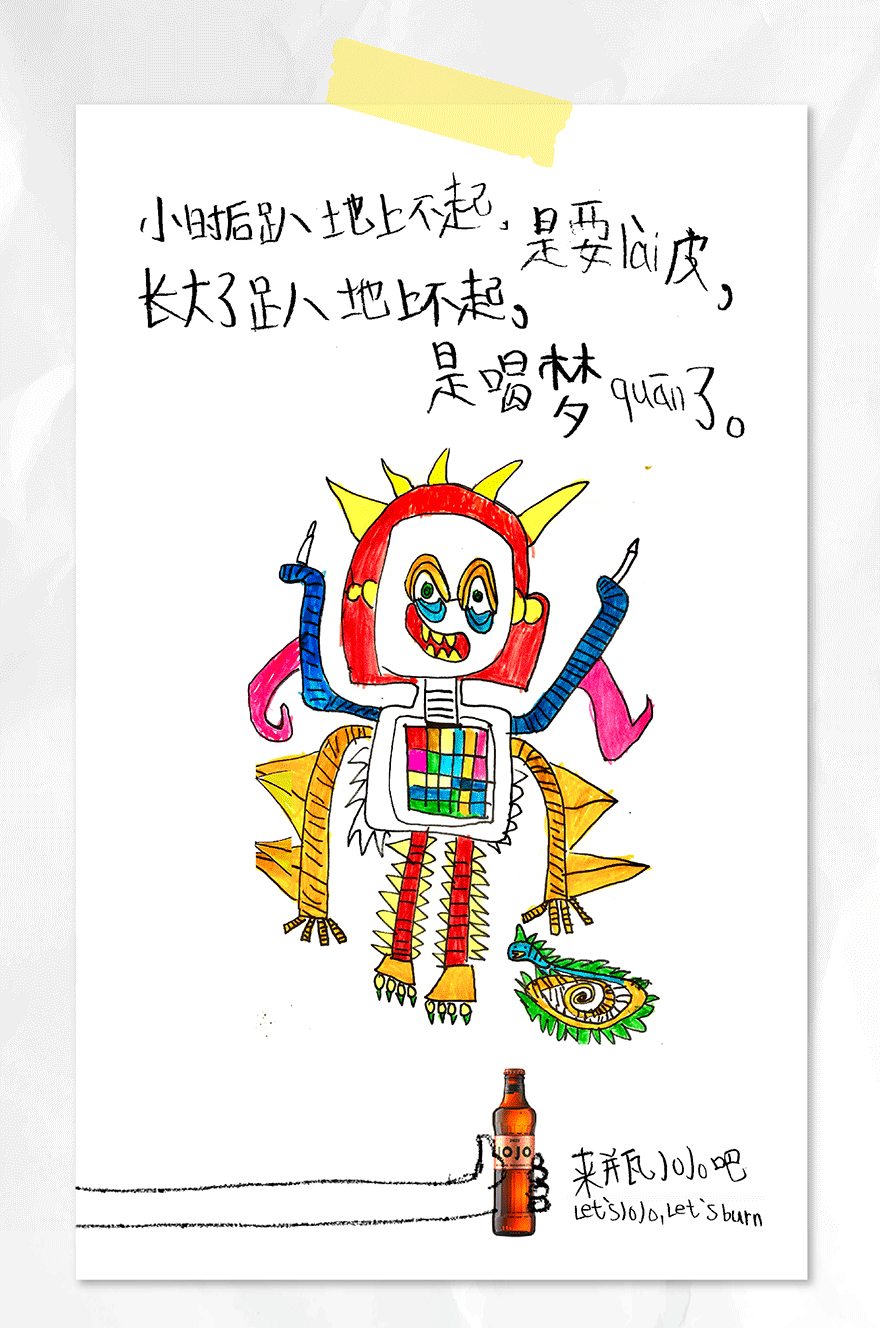 小时后趴地上不起，是要lài皮，
长大了趴地上不起，
是喝梦quān了。
JOJO
来瓶JOJO吧
Let's JOJO, Let's burn